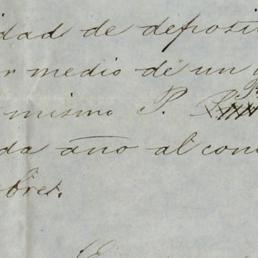 idad de deposi
r medio de un
mismo P.
da año al con
bres.